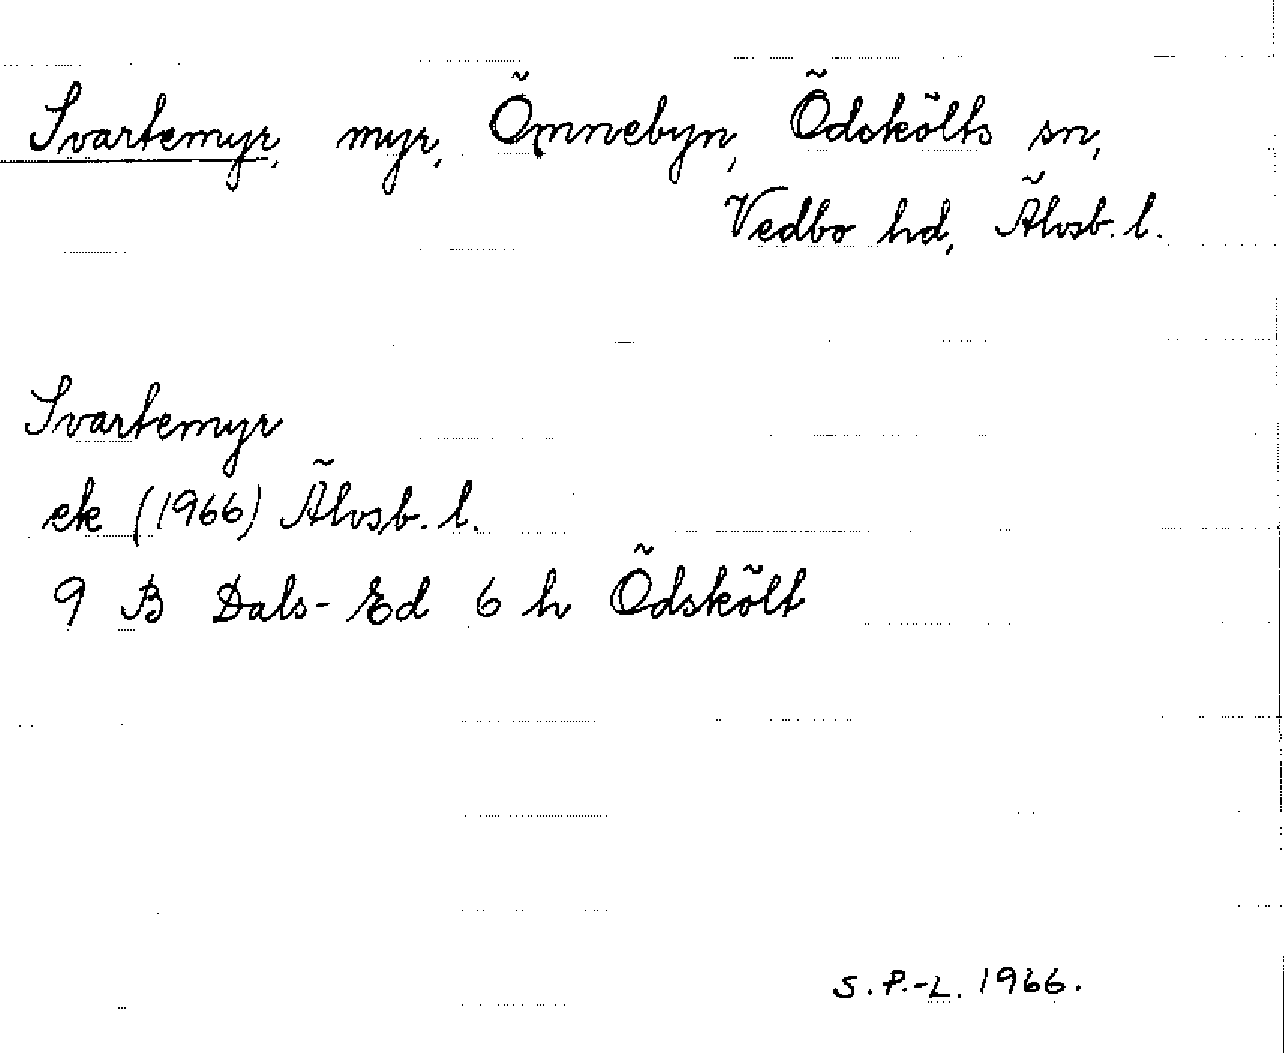 Svartemyr, myr, Ömnebyn, Ödskölts sn,
Vedbo hd, Älvsb. l.
Svartemyr
ek (1966) Älvsb. l.
9 B Dals-Ed 6 h Ödskölt
S. P.-L. 1966.